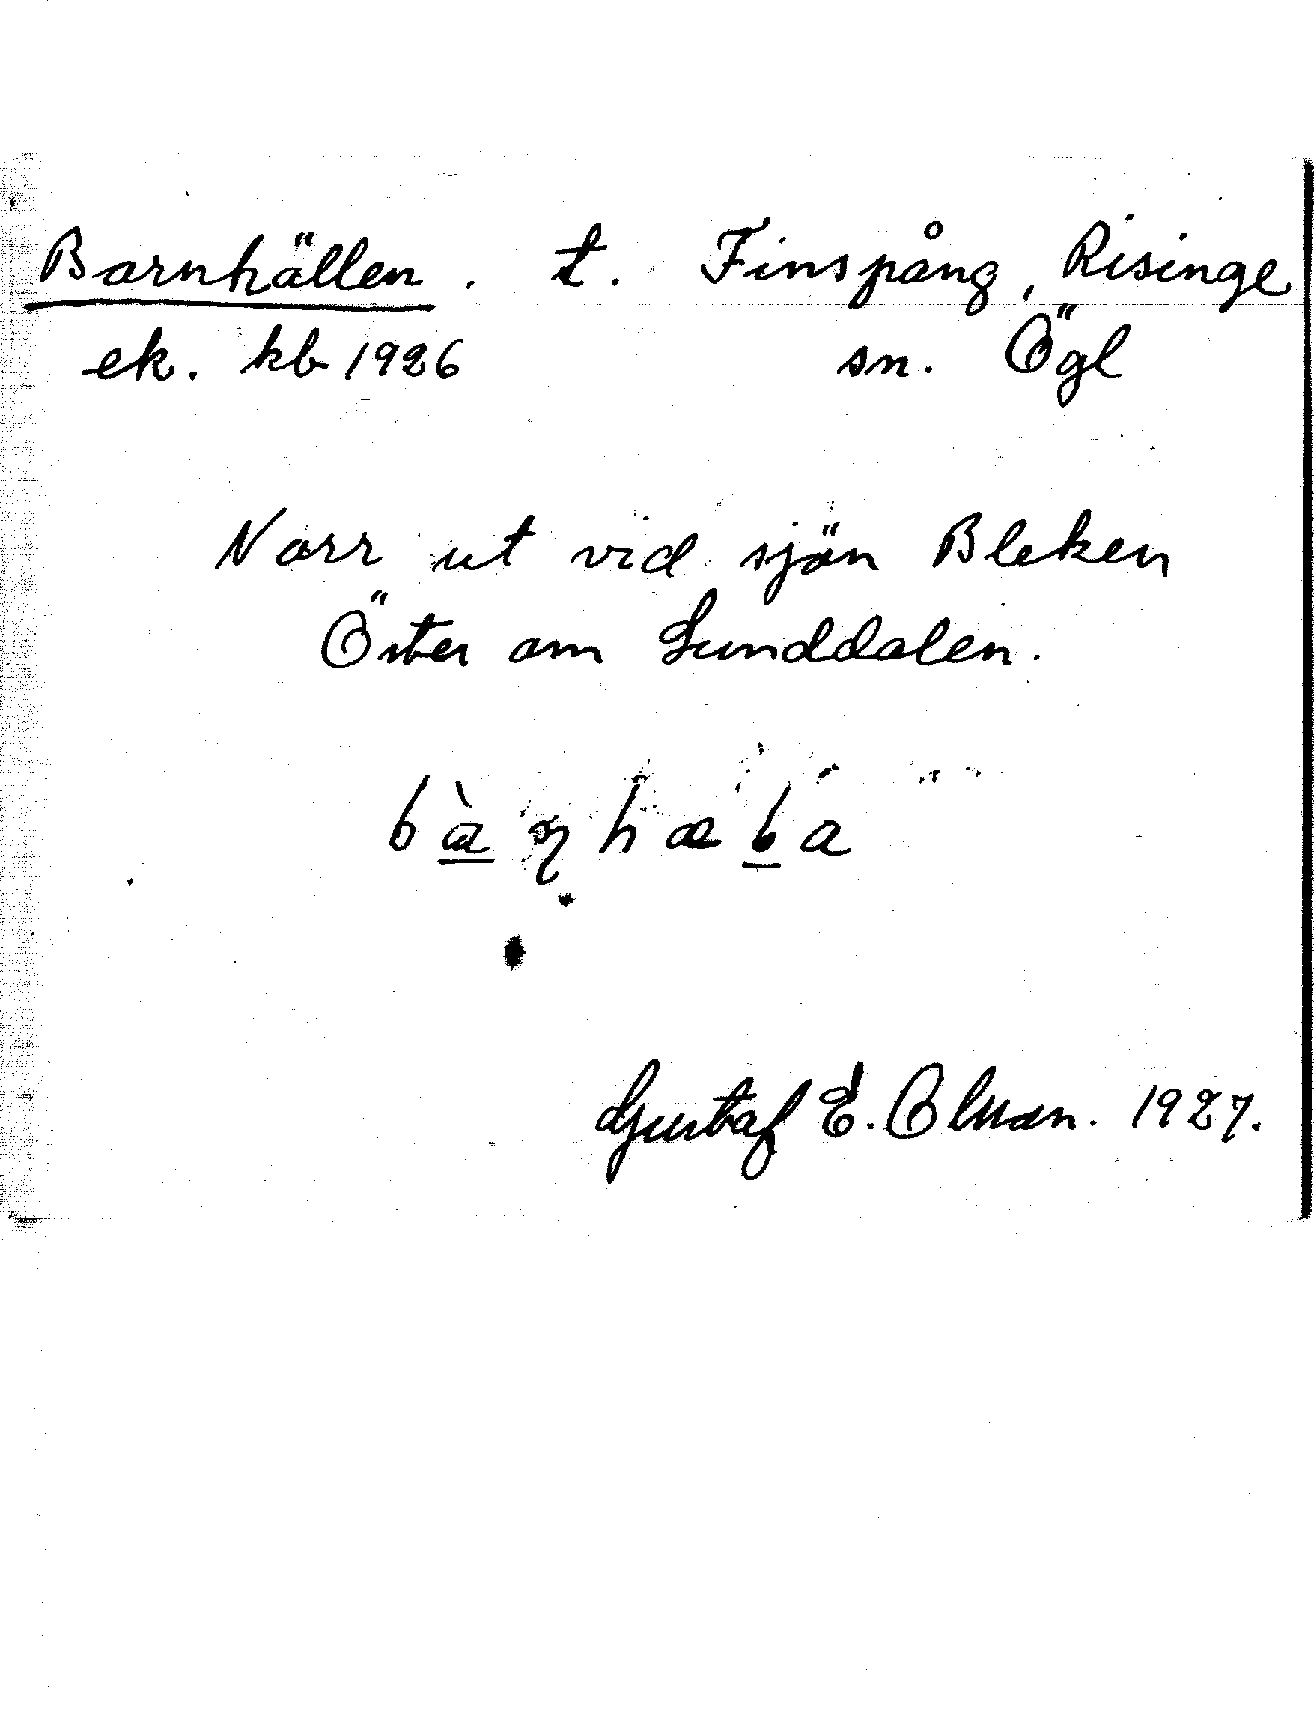 Barnhällen. t. Finspång, Risinge
ek. kb 1926 sn. Ögl
Norr ut vid sjön Bleken
Öster om Lunddalen.
Gustaf E. Olsson. 1927.